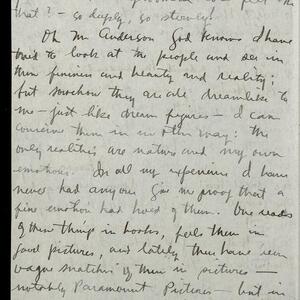 that? – so deeply, so
Oh Mr Anderson God knows I have
tried to look at the people and see in
them and beauty and reality;
but somehow they are all dreamlike to
me – just like dream figures – I can
conceive them in no other way: the
only realities are nature and my own
emotions. In all my experience I have
never had anyone give me proof that a
fine emotion had hold of them. One reads
of these things in books, feels them in
good pictures, and lately there have been
vague snatches of them in pictures —
notably Paramount Pictures – but in